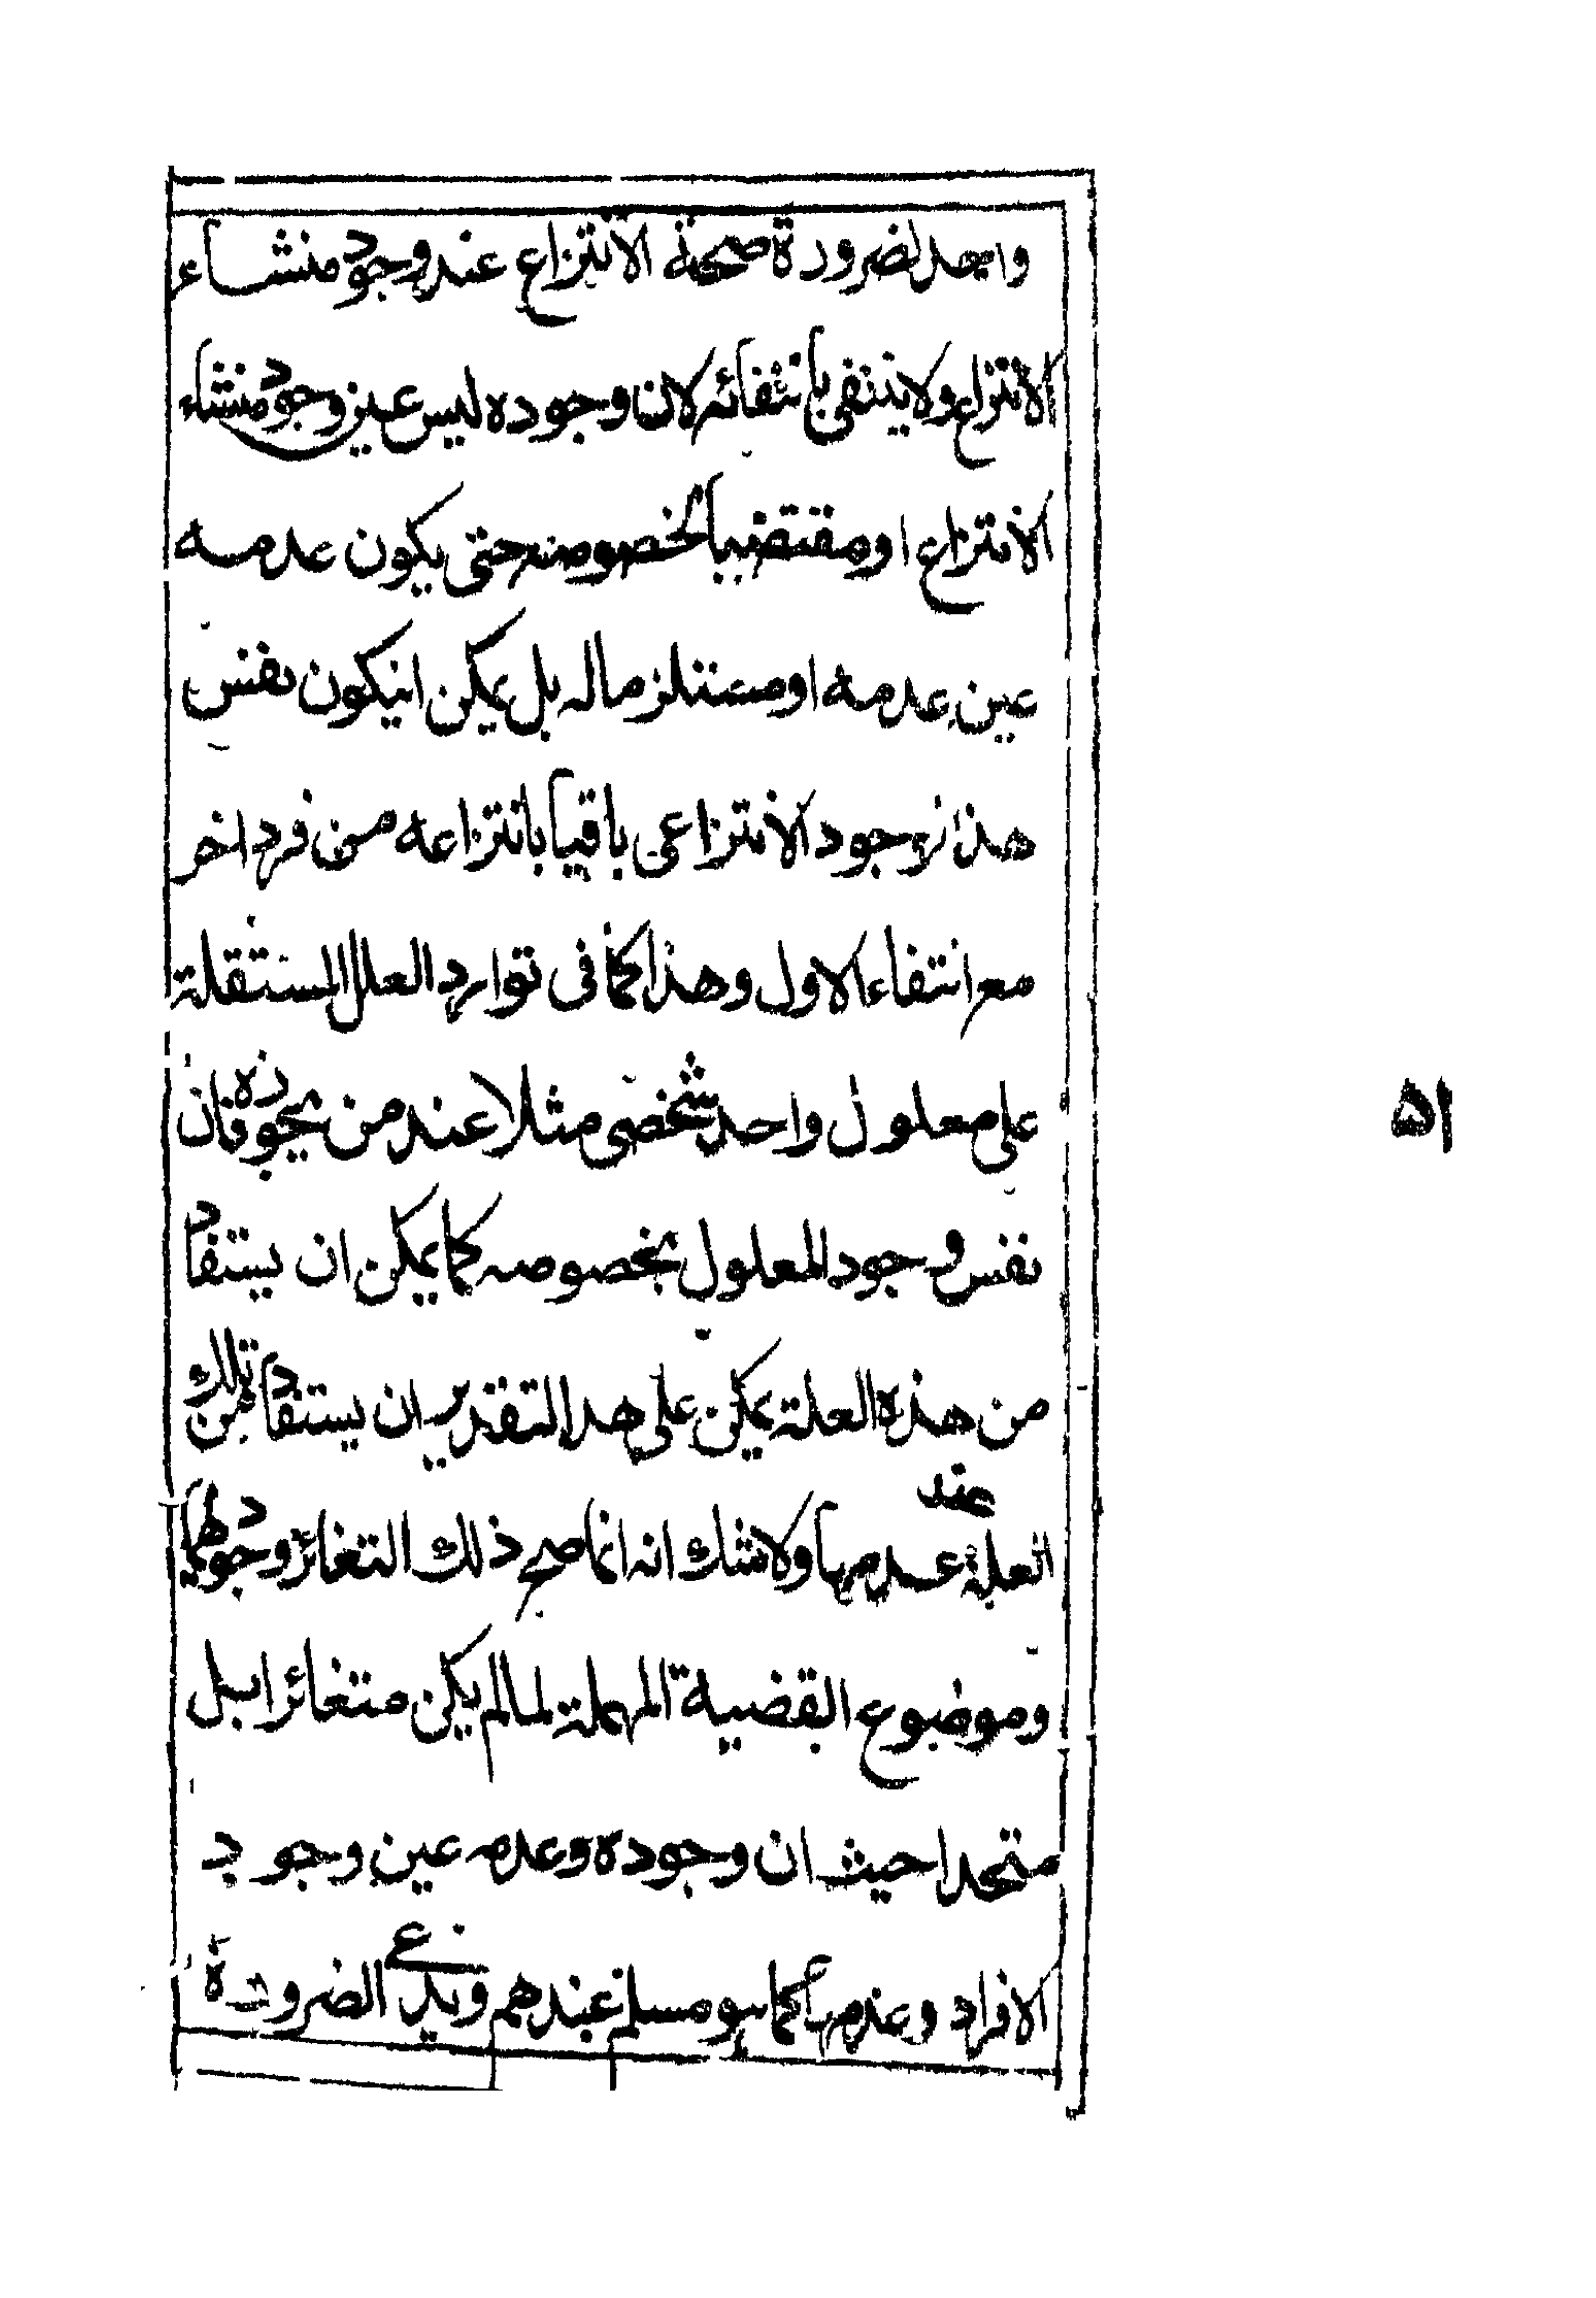 واحد لضرورة صحة الانتزاع عند وجود منشاء
الانتزاع ولا ينتفى بانتفائه لان وجوده ليس عين وجود منشاء
الانتزاع او مقتضيا لخصوصه حتى يكون عدمه
عين عدمه او مستلزما له بل يمكن انيكون نفس
هذا الوجود الانتزاعى باقيا بانتزاعه من فرد اخر
مع انتفاء الاول وهذا كما فى توارد العلل المستقلة
على معلول واحد شخصى مثلا عند من يجوزه فان
نفس وجود المعلول بخصوصه كما يمكن ان يستفاد
من هذه العلة يمكن على هذا التقدير ان يستفاد من تلك
العلة عند عدمها ولا شك انه انما صح ذلك التغائر وجودهما
وموضوع القضية المهملة لما لم يكن متغائرا بل
متحدا حيث ان وجوده وعدمه عين وجود
الافراد وعدمها كما هو مسلم عندهم ويدعى الضرورة
۵۱